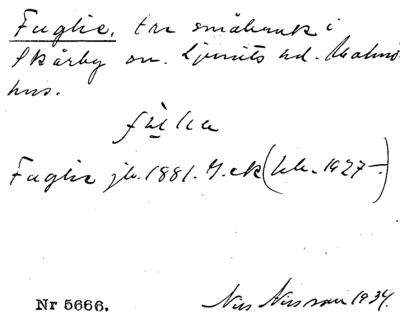 Fuglie, tre småbruk i
Skårby sn. Ljunits hd. Malmö-
hus.
Fuglie jb. 1881. G. ek (bebe. 1927-)
Nr 5666.
Nils Nilsson 1934.